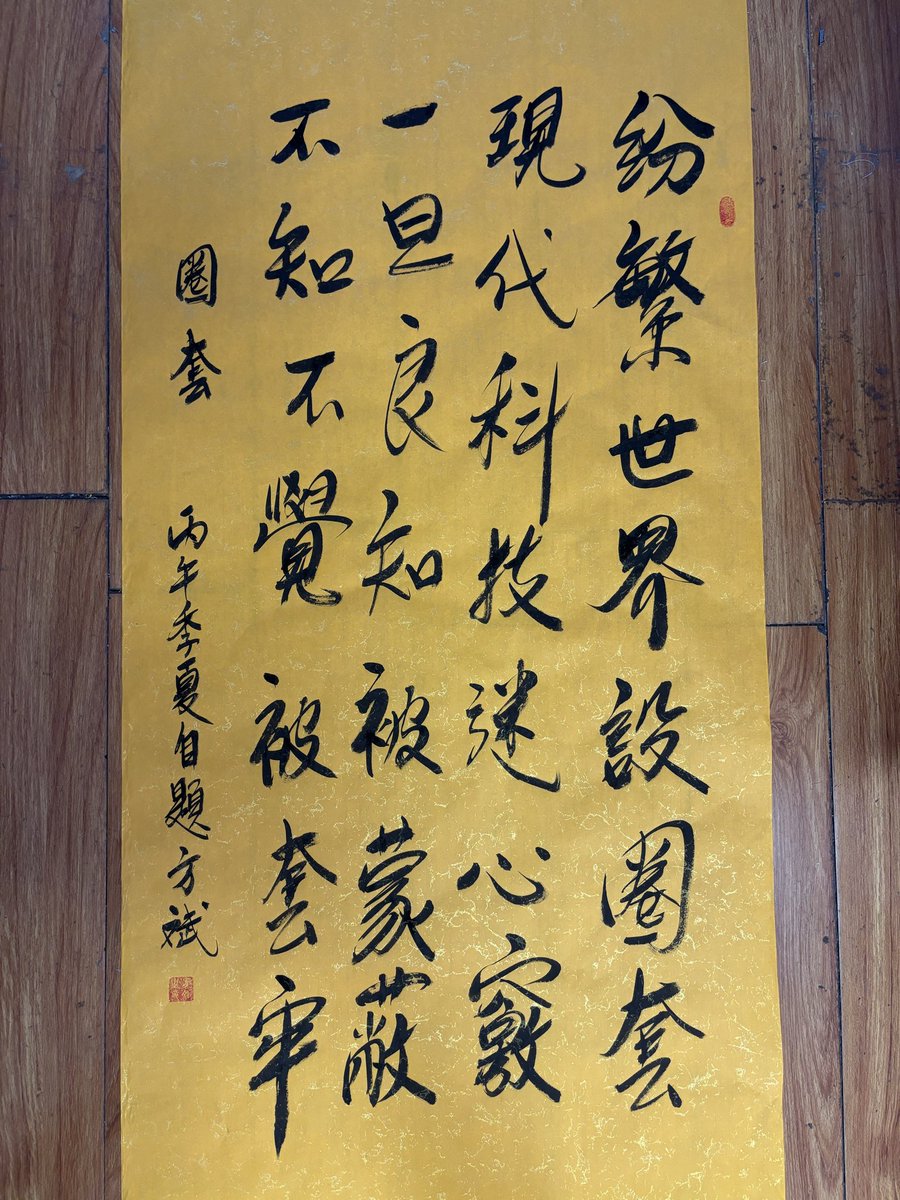 紛繁世界設圈套
現代科技迷心竅
一旦良知被蒙蔽
不知不覺被套牢
圈套
丙午季夏自題方斌